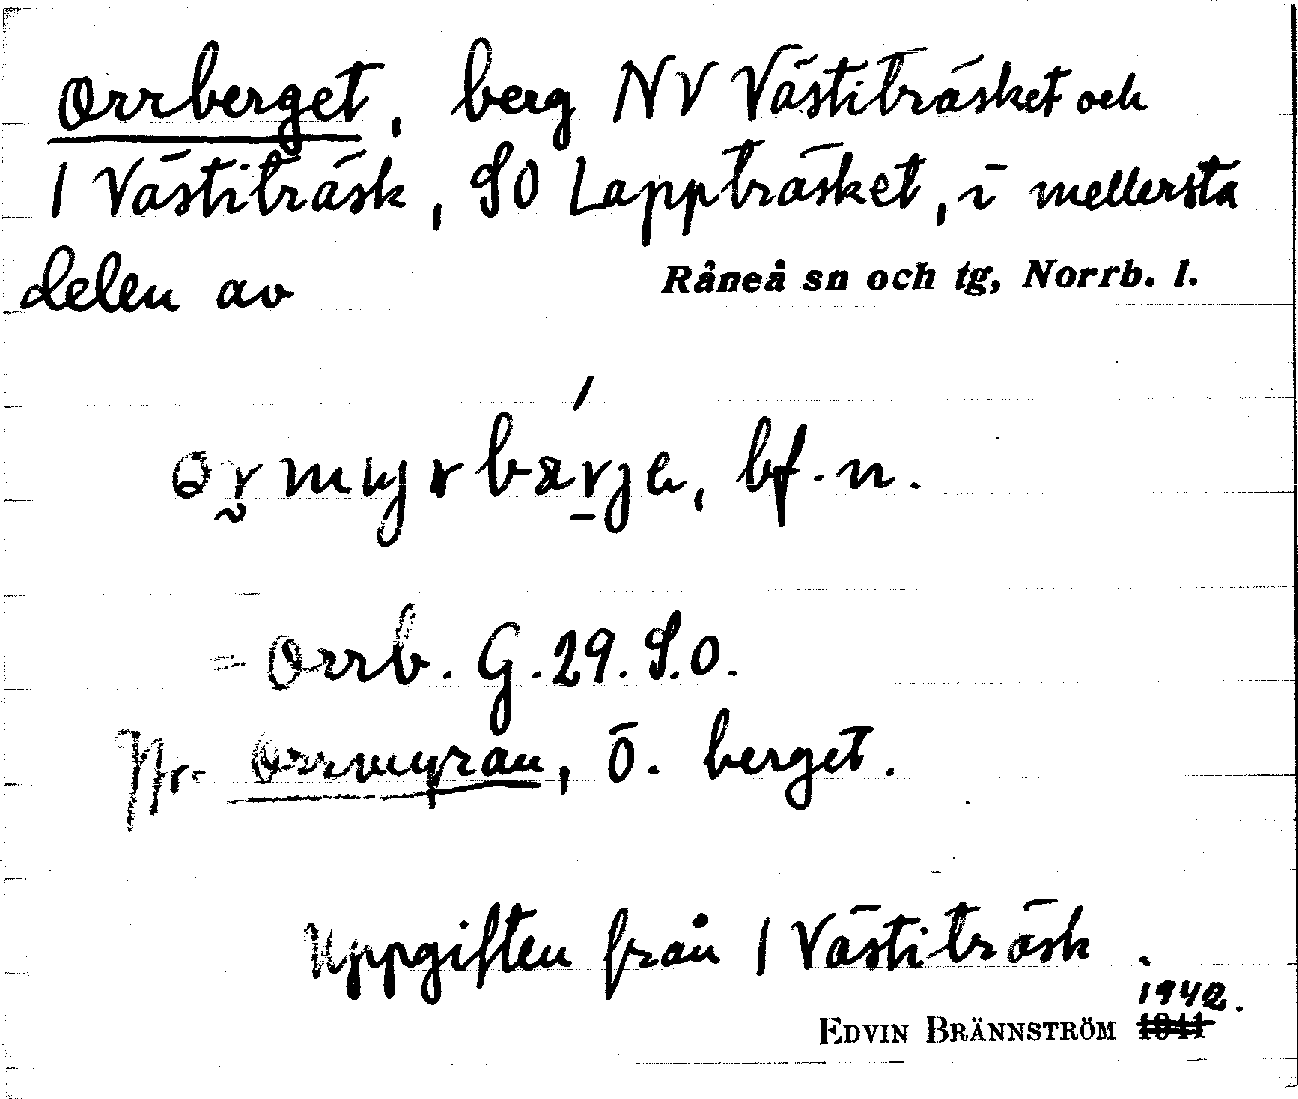 Orrberget, berg NV Västiträsket och
1 Västiträsk, SO Lappträsket, i mellersta
delen av Råneå sn och tg, Norrb. l.
bf. n.
= Orrb. G. 29. S.O.
Jfr. Orrmyran, Ö. berget.
Uppgiften från 1 Västiträsk.
1942.
EDVIN BRÄNNSTRÖM 1941